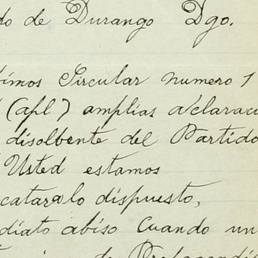 do de Durango Dgo.
timos Sircular numero 1
(apl) amplias aclaraci
disolbente del Partido
Usted estamos
catar lo dispuesto,
diato abiso cuando un
de